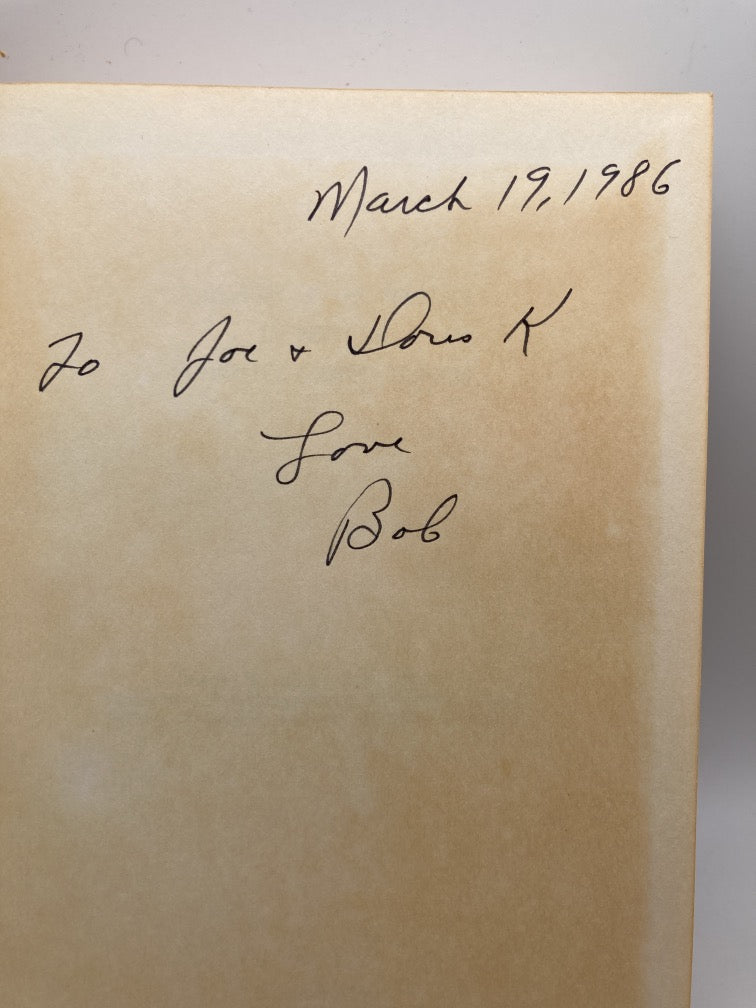 March 19, 1986
To Joe + Doris K
Love
Bob